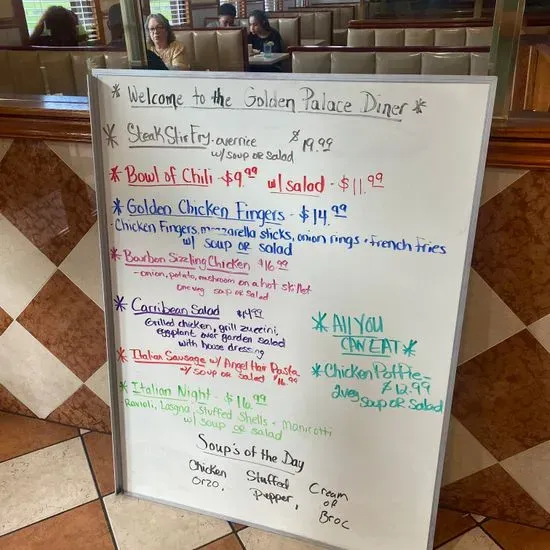 * Welcome to the Golden Palace Diner *
* Steak Stir Fry - over rice $19.99
w/ soup or salad
* Bowl of Chili - $9.99 w/ salad - $11.99
* Golden Chicken Fingers - $14.99
- Chicken Fingers, mozzarella sticks, onion rings + french fries
w/ soup or salad
* Bourbon Sizzling Chicken $16.99
- onion, potato, mushroom on a hot skillet
one veg soup or salad
* Carribean Salad $14.99
Grilled chicken, grill zuccini,
eggplant over garden salad
with house dressing
* Italian Sausage w/ Angel Hair Pasta
w/ soup or salad $16.99
* Italian Night - $16.99
- Ravioli, Lasgna, Stuffed Shells + Manicotti
w/ soup or salad
* All You
Can Eat *
* Chicken Poffie -
$12.99
2 veg
soup or salad
Soup's of the Day
Chicken
Orzo,
Stuffed
Pepper,
Cream
of
Broc